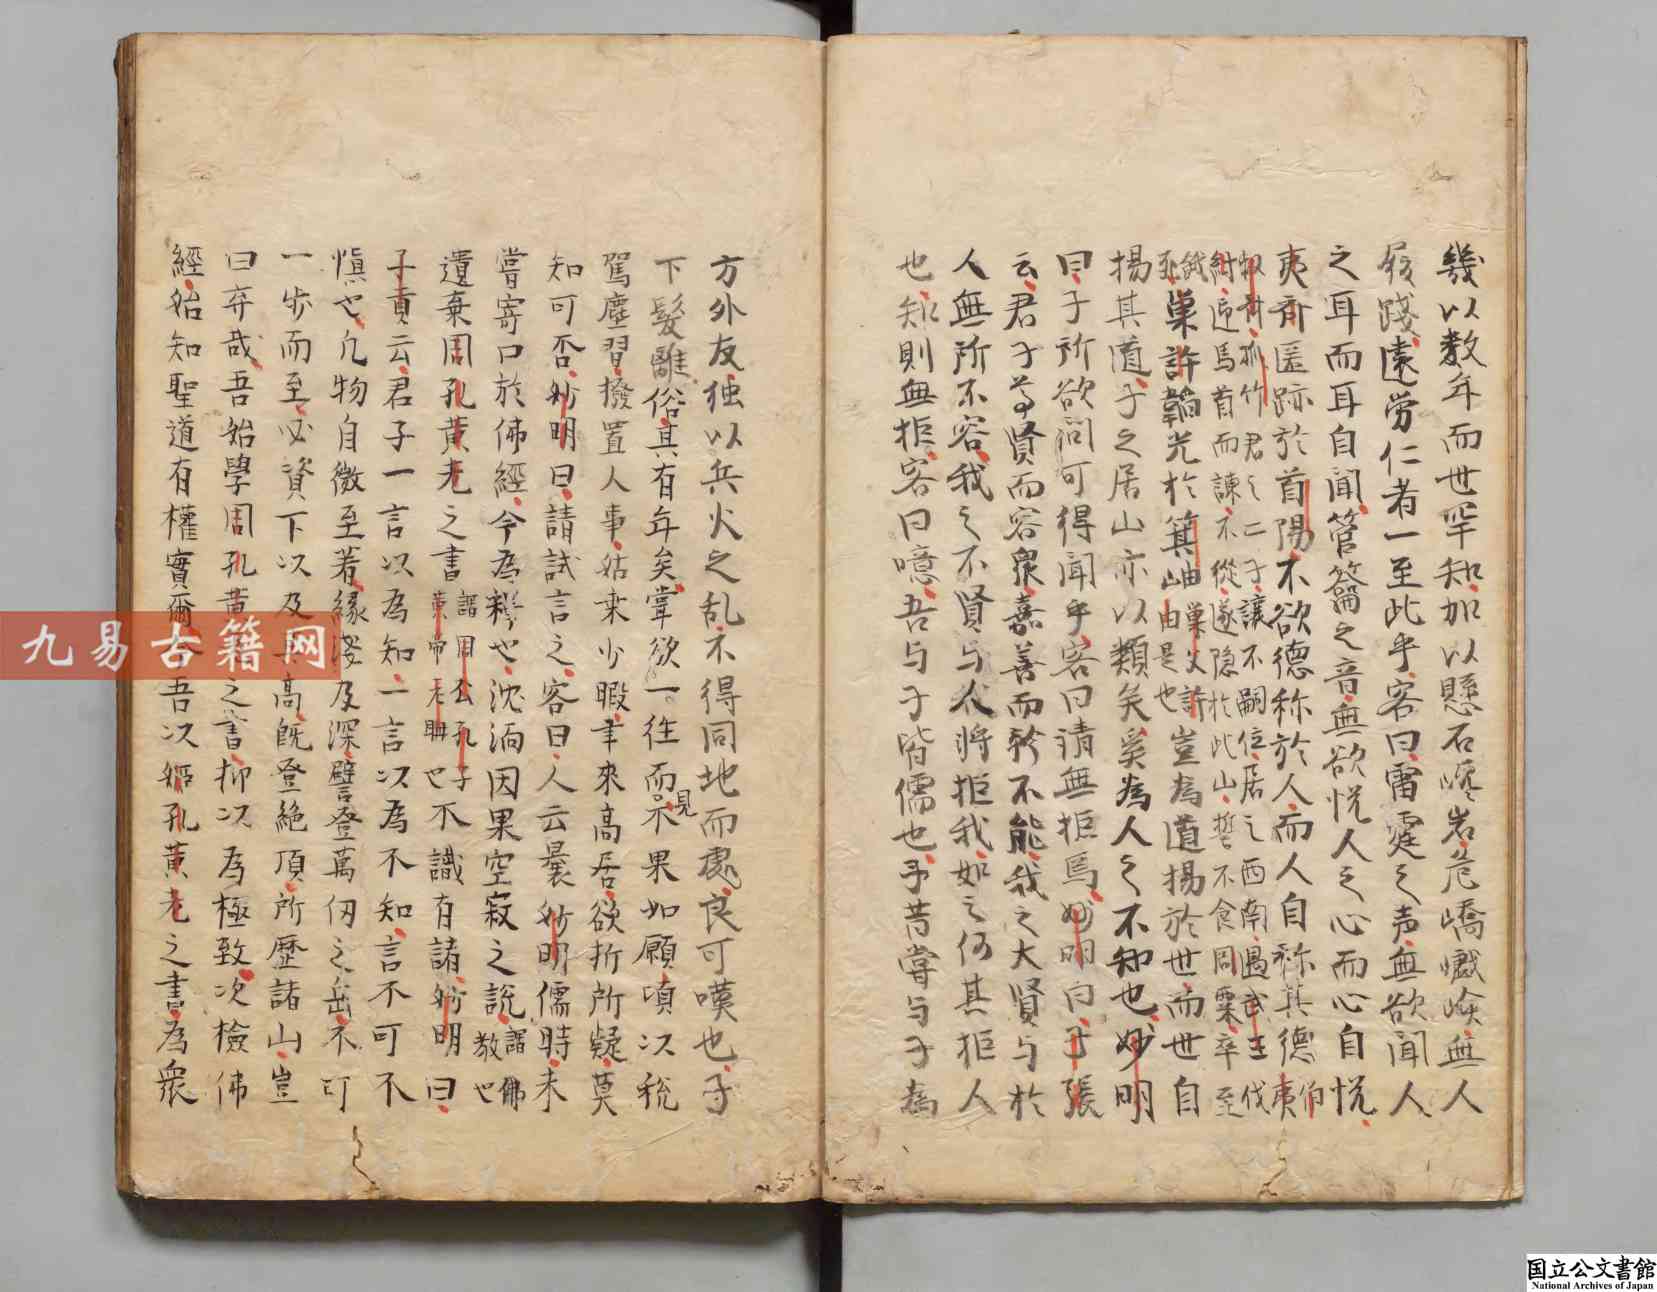 幾以数年而世罕知加以懸石巉岩危嶠巇嶮無人
屐踐遠労仁者一至此乎客曰雷霆之声無欲聞人
之耳而耳自聞管籥之音無欲悦人之心而心自悦
夷斉匿跡於首陽不欲徳称於人而人自称其徳伯夷
叔斉孤竹君之二子讓不嗣位居之西南遇武王伐
紂迎馬首而諫不從遂隠於此山誓不食周粟卒至
餓死巣許韜光於箕岫巣父許由是也豈為道揚於世而世自
揚其道子之居山亦以類矣奚為人之不知也妙明
曰子所欲問可得聞乎客曰請無拒焉妙明曰子張
云君子尊賢而容衆嘉善而矜不能我之大賢与於
人無所不容我之不賢与人将拒我如之何其拒人
也知則無拒容曰噫吾与子皆儒也予昔嘗与子為
方外友独以兵火之乱不得同地而處良可嘆也子
下髪離俗其有年矣嘗欲一往而見不果如願頃以税
駕塵習撥置人事姑来少暇聿來高居欲折所疑莫
知可否妙明曰請試言之客曰人云曩妙明儒時未
嘗寄口於佛經今為釋也沈湎因果空寂之說謂佛教也
遺棄周孔黄老之書謂周公孔子黄帝老聃也不識有諸妙明曰
子貢云君子一言以為知一言以為不知言不可不
慎也凢物自微至著緣淺及深譬登萬仭之岳不可
一歩而至必資下以及高既登絶頂所歴諸山豈
曰弃哉吾始學周孔黄之書抑以為極致次檢佛
經始知聖道有權實爾吾以姬孔黄老之書為衆
九易古籍网
国立公文書館
National Archives of Japan